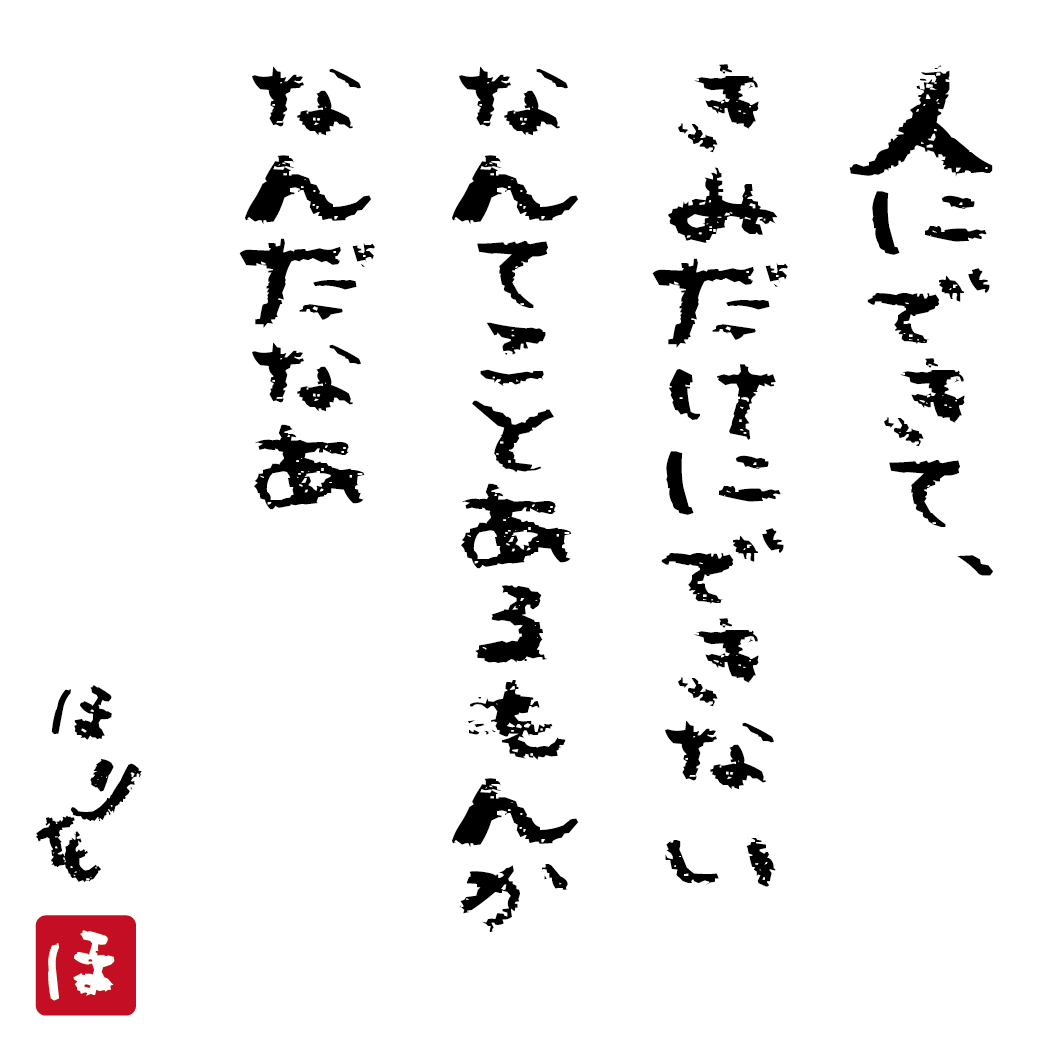 人にできて、
きみだけにできない
なんてことあるもんか
なんだなあ
ほりを
ほ